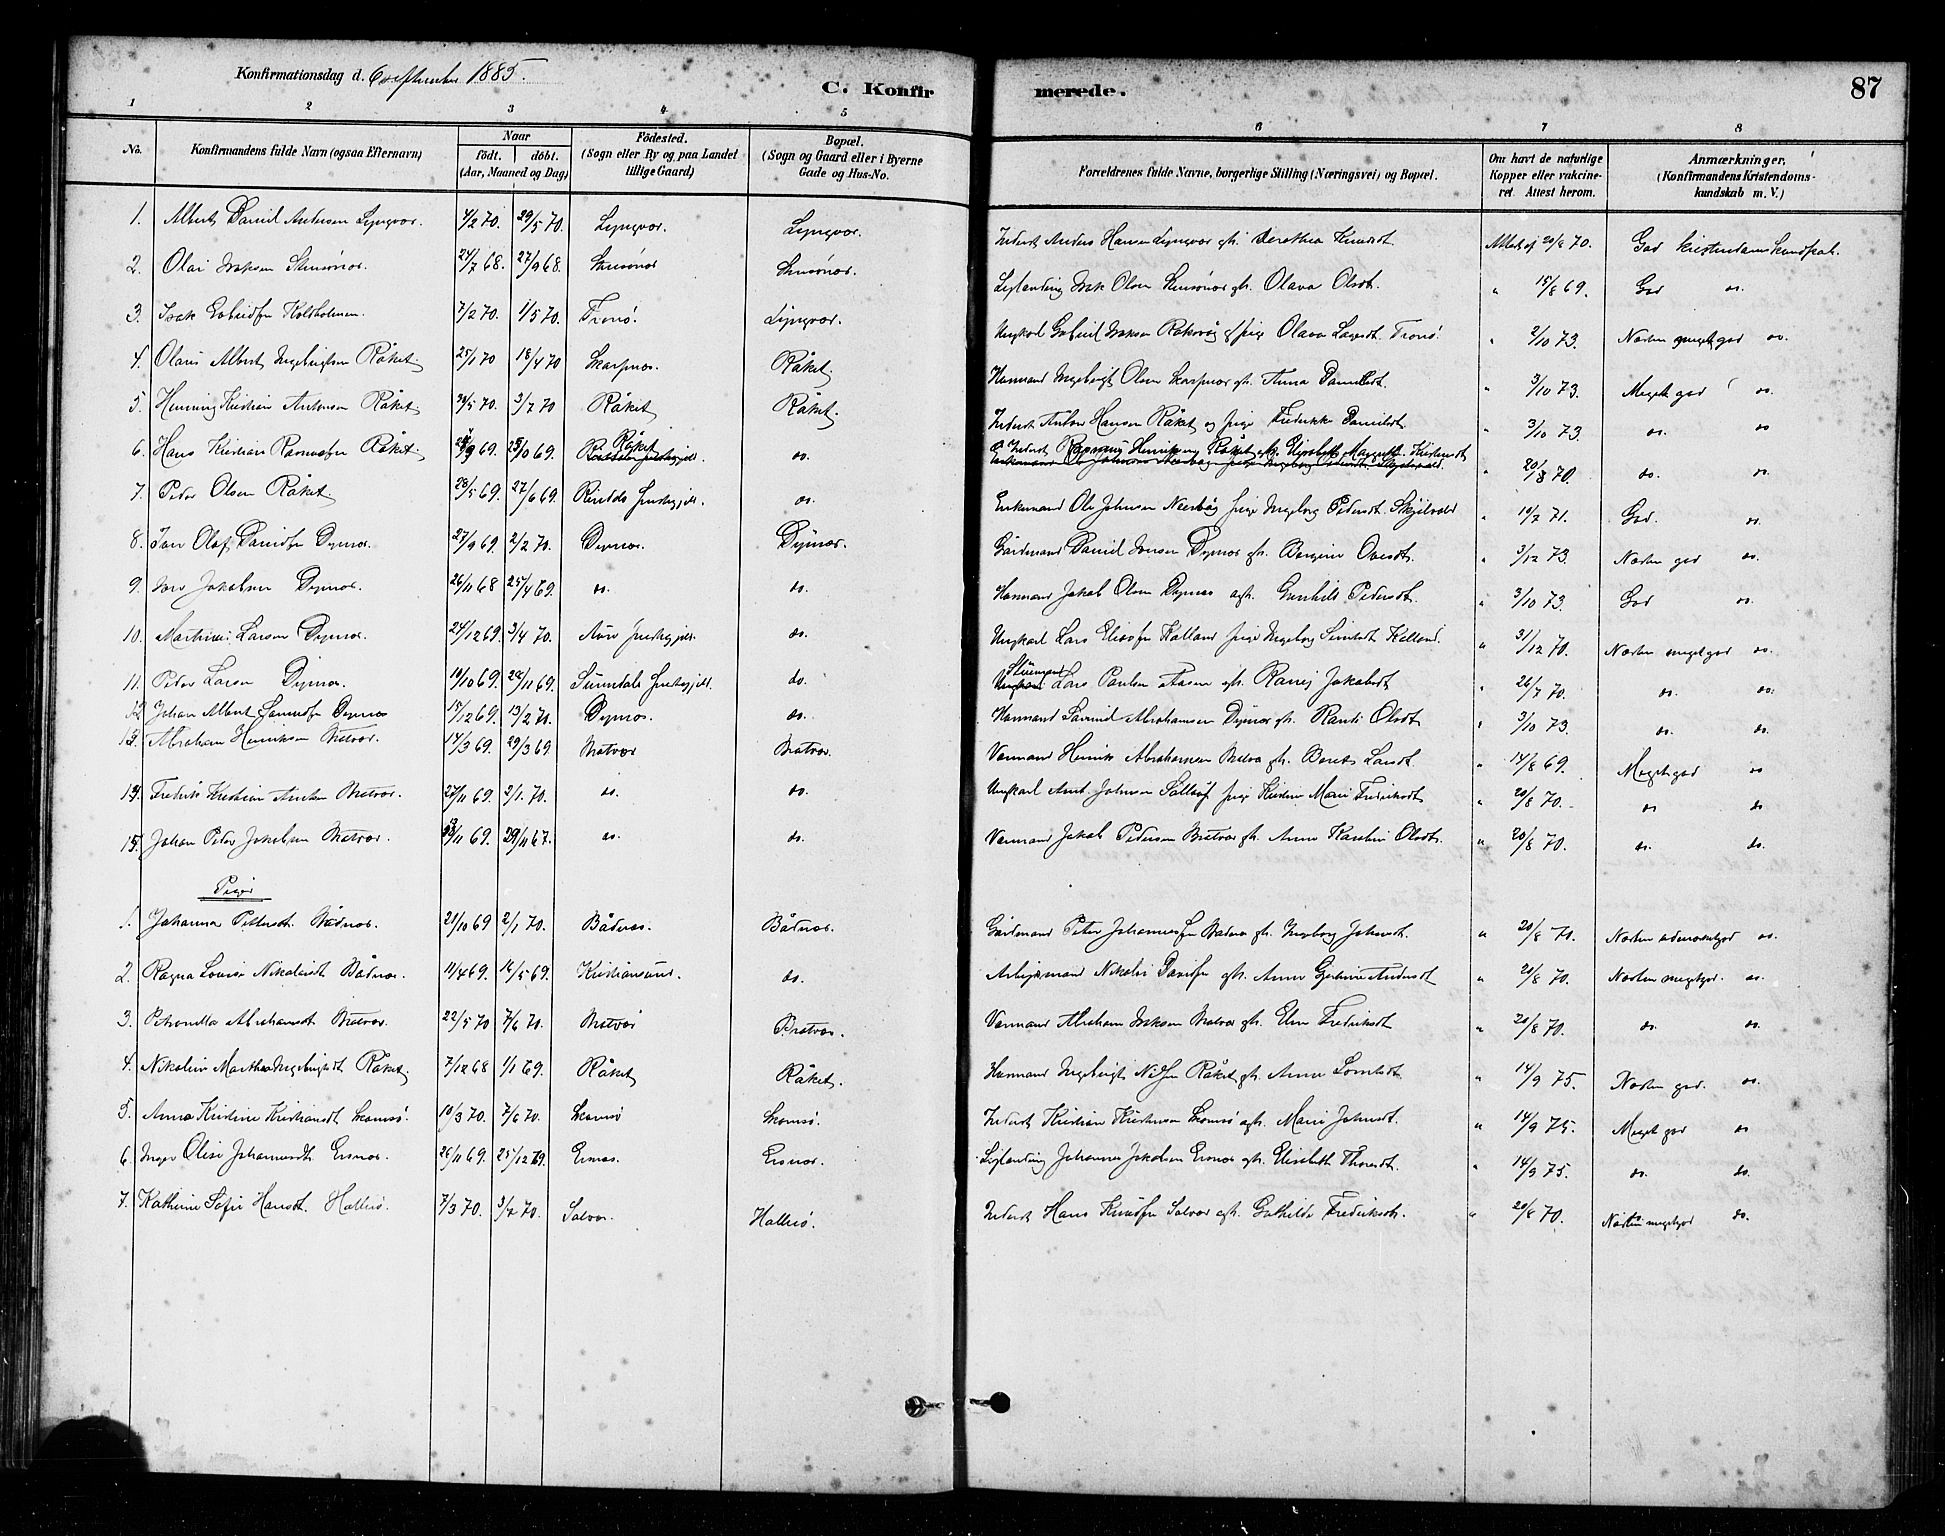 Konfirmationsdag d. 6 september 1885.
C. Konfirmerede.
87
1 2 3 4 5 6 7 8
No. Konfirmandens fulde Navn (ogsaa Efternavn) Naar födt. döbt. (Aar, Maaned og Dag) Födested. (Sogn eller By og paa Landet tillige Gaard) Bopæl. (Sogn og Gaard eller i Byerne Gade og Hus-No. Forældrenes fulde Navne, borgerlige Stilling (Næringsvei) og Bopæl. Om havt de naturlige Kopper eller vakcineret. Attest herom. Anmærkninger. (Konfirmandens Kristendomskundskab m. V.)
1. Albert Daniel Andersen Lyngvær. 4/2 70. 29/5 70. Lyngvær. Lyngvær. Inderst Anders Hansen Lyngvær gh. Dorothea Knudsdt. Attest af 20/8 70. God kristendomskundskab.
2. Olai Isaksen 24/7 68. 27/9 68. Olsen gh. Olava Olsdt. " 15/8 69. God do.
3. Isak Gabrielsen Kolsholmen. 7/2 70. 1/5 70. Tronsø. Lyngvær. Ungkarl Gabriel Isaksen pige Olava Larsdt. Tronsø. " 2/10 73. Næsten meget god do.
4. Olaus Albert Ingebrigtsen Råket. 25/1 70 18/4 70 Skarpnes. Råket. Husmand Ingebrigt Olsen Skarpnes gh. Anna Danielsdt. " 3/10 73. Meget god do.
5. Henning Kristian Antonsen Råket 28/5 70. 3/7 70 Råket Råket. Inderst Anton Hansen Råket og pige Fredrikke Danielsdt " 3/10 73. do. do
6. Hans Kristian Rasmussen Råket. 9 69. 69. Råket do. Inderst Rasmus Henriksen Råket gh. Elisabeth Margrethe Kristensdt " 20/8 70. do. do.
7. Peder Olsen Råket. 28/5 69. 27/6 69. Rindals præstegjeld. do. Enkemand Ole Johnsen pige Ingeborg Pedersdt. " 10/7 71. God. do.
8. Jon Olaf Danielsen Dyrnæs. 27/9 69. 2/2 70. Dyrnæs. Dyrnæs. Gårdmand Daniel Jonsen Dyrnæs gh. Bergine Olsdt. " 3/12 73. Næsten god do.
9. Iver Jakobsen Dyrnæs. 26/11 68 25/4 69. do. do. Husmand Jakob Olsen Dyrnæs gh. Gunhild Pedersdt. " 3/10 73. God do.
10. Martinus Larsen Dyrnæs. 24/12 69. 3/4 70. Aure præstegjeld. do. Ungkarl Lars Eliassen Kalland pige Ingeborg " 31/12 70. Næsten meget god do.
11. Peder Larsen Dyrnæs. 10/10 69. 69. Sunndals præstegjeld. do. Lars Paulsen Aasen gh. Ranej Jakobsdt " 26/7 70. do. do.
12. Johan Albert Dyrnæs 15/12 69. 13/2 70. Dyrnæs. do. Husmand Abrahamsen Dyrnæs gh. Randi Olsdt " 3/10 73. do. do.
13. Abraham Henriksen Bratvær. 14/3 69. 29/3 69 Bratvær Bratvær. Henrik Abrahamsen Bratvær gh. Beret Larsdt " 14/8 69. Meget god do
14. Fredrik Kristian Antsen Bratvær. 27/11 69. 2/1. 70. do. do. Ungkarl Ant. Johnsen pige Kirstine Marie Fredriksdt " 20/8 70. do do.
15. Johan Peder Jakobsen Bratvær. 69. 29/11 67. do. do. Jakob Pedersen Bratvær gh. Anne Karoline Olsdt. " 20/8 70. do. do.
Piger
1. Johanna Pettersdt. Bådnæs. 21/10 69 2/1 70. Bådnæs. Bådnæs. Gårdmand Peter Johannessen Bådnæs gh. Ingeborg Johnsdt. " 20/8 70. Næsten udmærket god do.
2. Ragna Louise Nikolaisdt Bådnæs. 11/4 69. 16/5 69. Kristiansund. do. Arbejdsmand Nikolai Davidsen gh. Anne Gjertine Andersdt " 20/8 70. Næsten meget god. do.
3. Petronella Abrahamsdt Bratvær. 22/5 70 7/6 70. Bratvær Bratvær. Abraham Isaksen Bratvær gh. Elen Fredriksdt " 20/8 70. do. do.
4. Nikoline Marthea Ingebrigtsdt Råket. 7/12 68 1/1 69. Råket Råket. Husmand Ingebrigt Nilsen Råket gh. Anne " 14/9 75. Næsten god. do.
5. Anna Kristine Kristiansdt Skomsø. 10/3 70. 7/6 70. Skomsø Skomsø. Inderst Kristian Kristensen Skomsø gh. Marie Johnsdt. " 14/9 75. Meget god do
6. Inger Olise Johannesdt. Ernæs. 26/11 69. 25/12 79. Ernæs. Ernæs. Johannes Jakobsen Ernæs gh. Elisabeth Thoresdt. " 14/9 75 do. do.
7. Kathrine Sofie Hansdt. Hallesø. 7/3 70. 70. Salvær. Hallesø. Inderst Hans Knudsen Salvær gh. Gothilde Fredriksdt. " 20/8 70. Næsten meget god do.